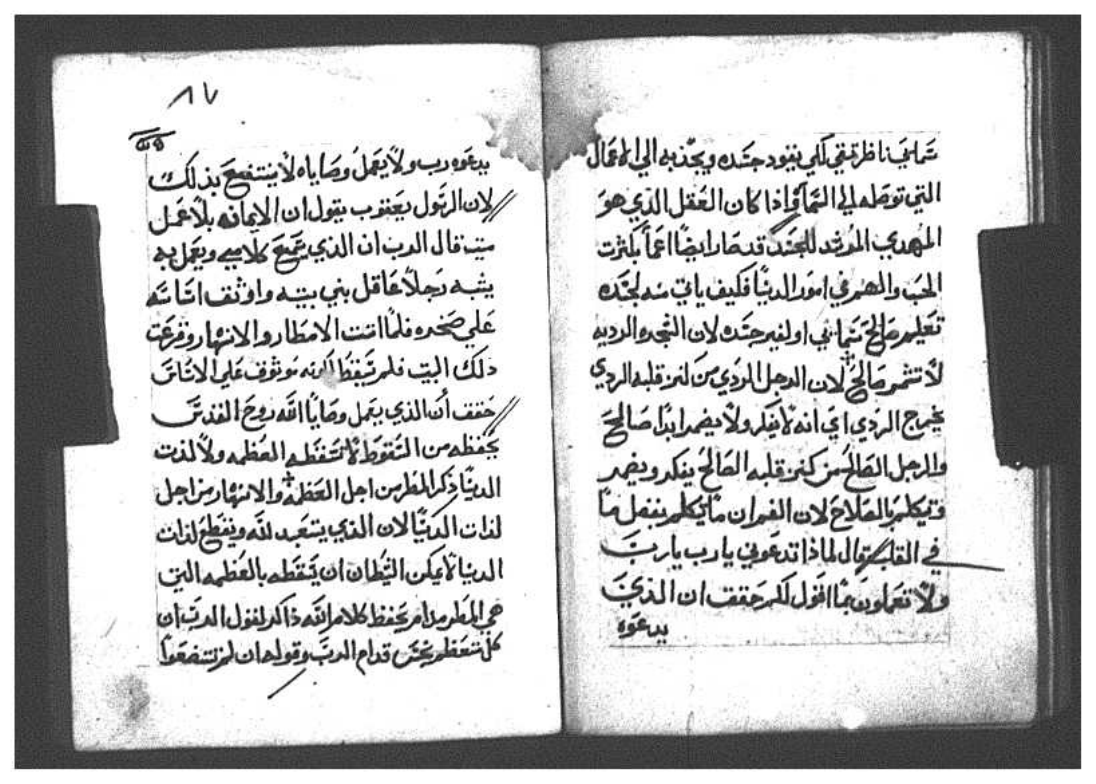 شمايي ناظر نقي لكي يقود جسده ويجذبه الي الاعمال
التي توصله الي السما واذا كان العقل الذي هو
المهدي المرشد للجسد قد صار ايضا اعما بكثرت
الحب والهم في امور الدنيا فكيف ياتي منه لجسده
تعليم صالح شمايي او لغير جسده لان الشجره الرديه
لا تثمر صالح لان الرجل الردي من كنز قلبه الردي
يخرج الردي اي انه لا يفكر ولا يضمر ابدا صالح
والرجل الصالح من كنز قلبه الصالح يفكر ويضمر
ويتكلم بالصلاح لان الفم ان ما يتكلم بفضل ما
في القلب قال لماذا تدعوني يارب يارب
ولا تعملون بما اقول لكم حقق ان الذي
يدعوه
٨٧
يدعوه رب ولا يعمل وصاياه لا ينتفع بذلك
لان الرسول يعقوب يقول ان الايمانه بلا عمل
ميت قال الرب ان الذي يسمع كلامي ويعمل به
يشبه رجلا عاقل بني بيته واوثق اساسه
علي صخره فلما اتت الامطار والانهار وقرعت
ذلك البيت فلم يسقط لانه موثوق علي الاساس
حقق ان الذي يعمل وصايا الله روح القدس
يحفظه من السقوط لا تسقطه العظمه ولا لذت
الدنيا ذكر المطر من اجل العظمه والانهار من اجل
لذات الدنيا لان الذي يتعبد لله ويقطع لذات
الدنيا لا يمكن الشيطان ان يسقطه بالعظمه التي
هي المطر مادام يحفظ كلام الله ذاكر لقول الرب ان
كل متعظم نجس قدام الرب وقوله ان لم تتضعوا